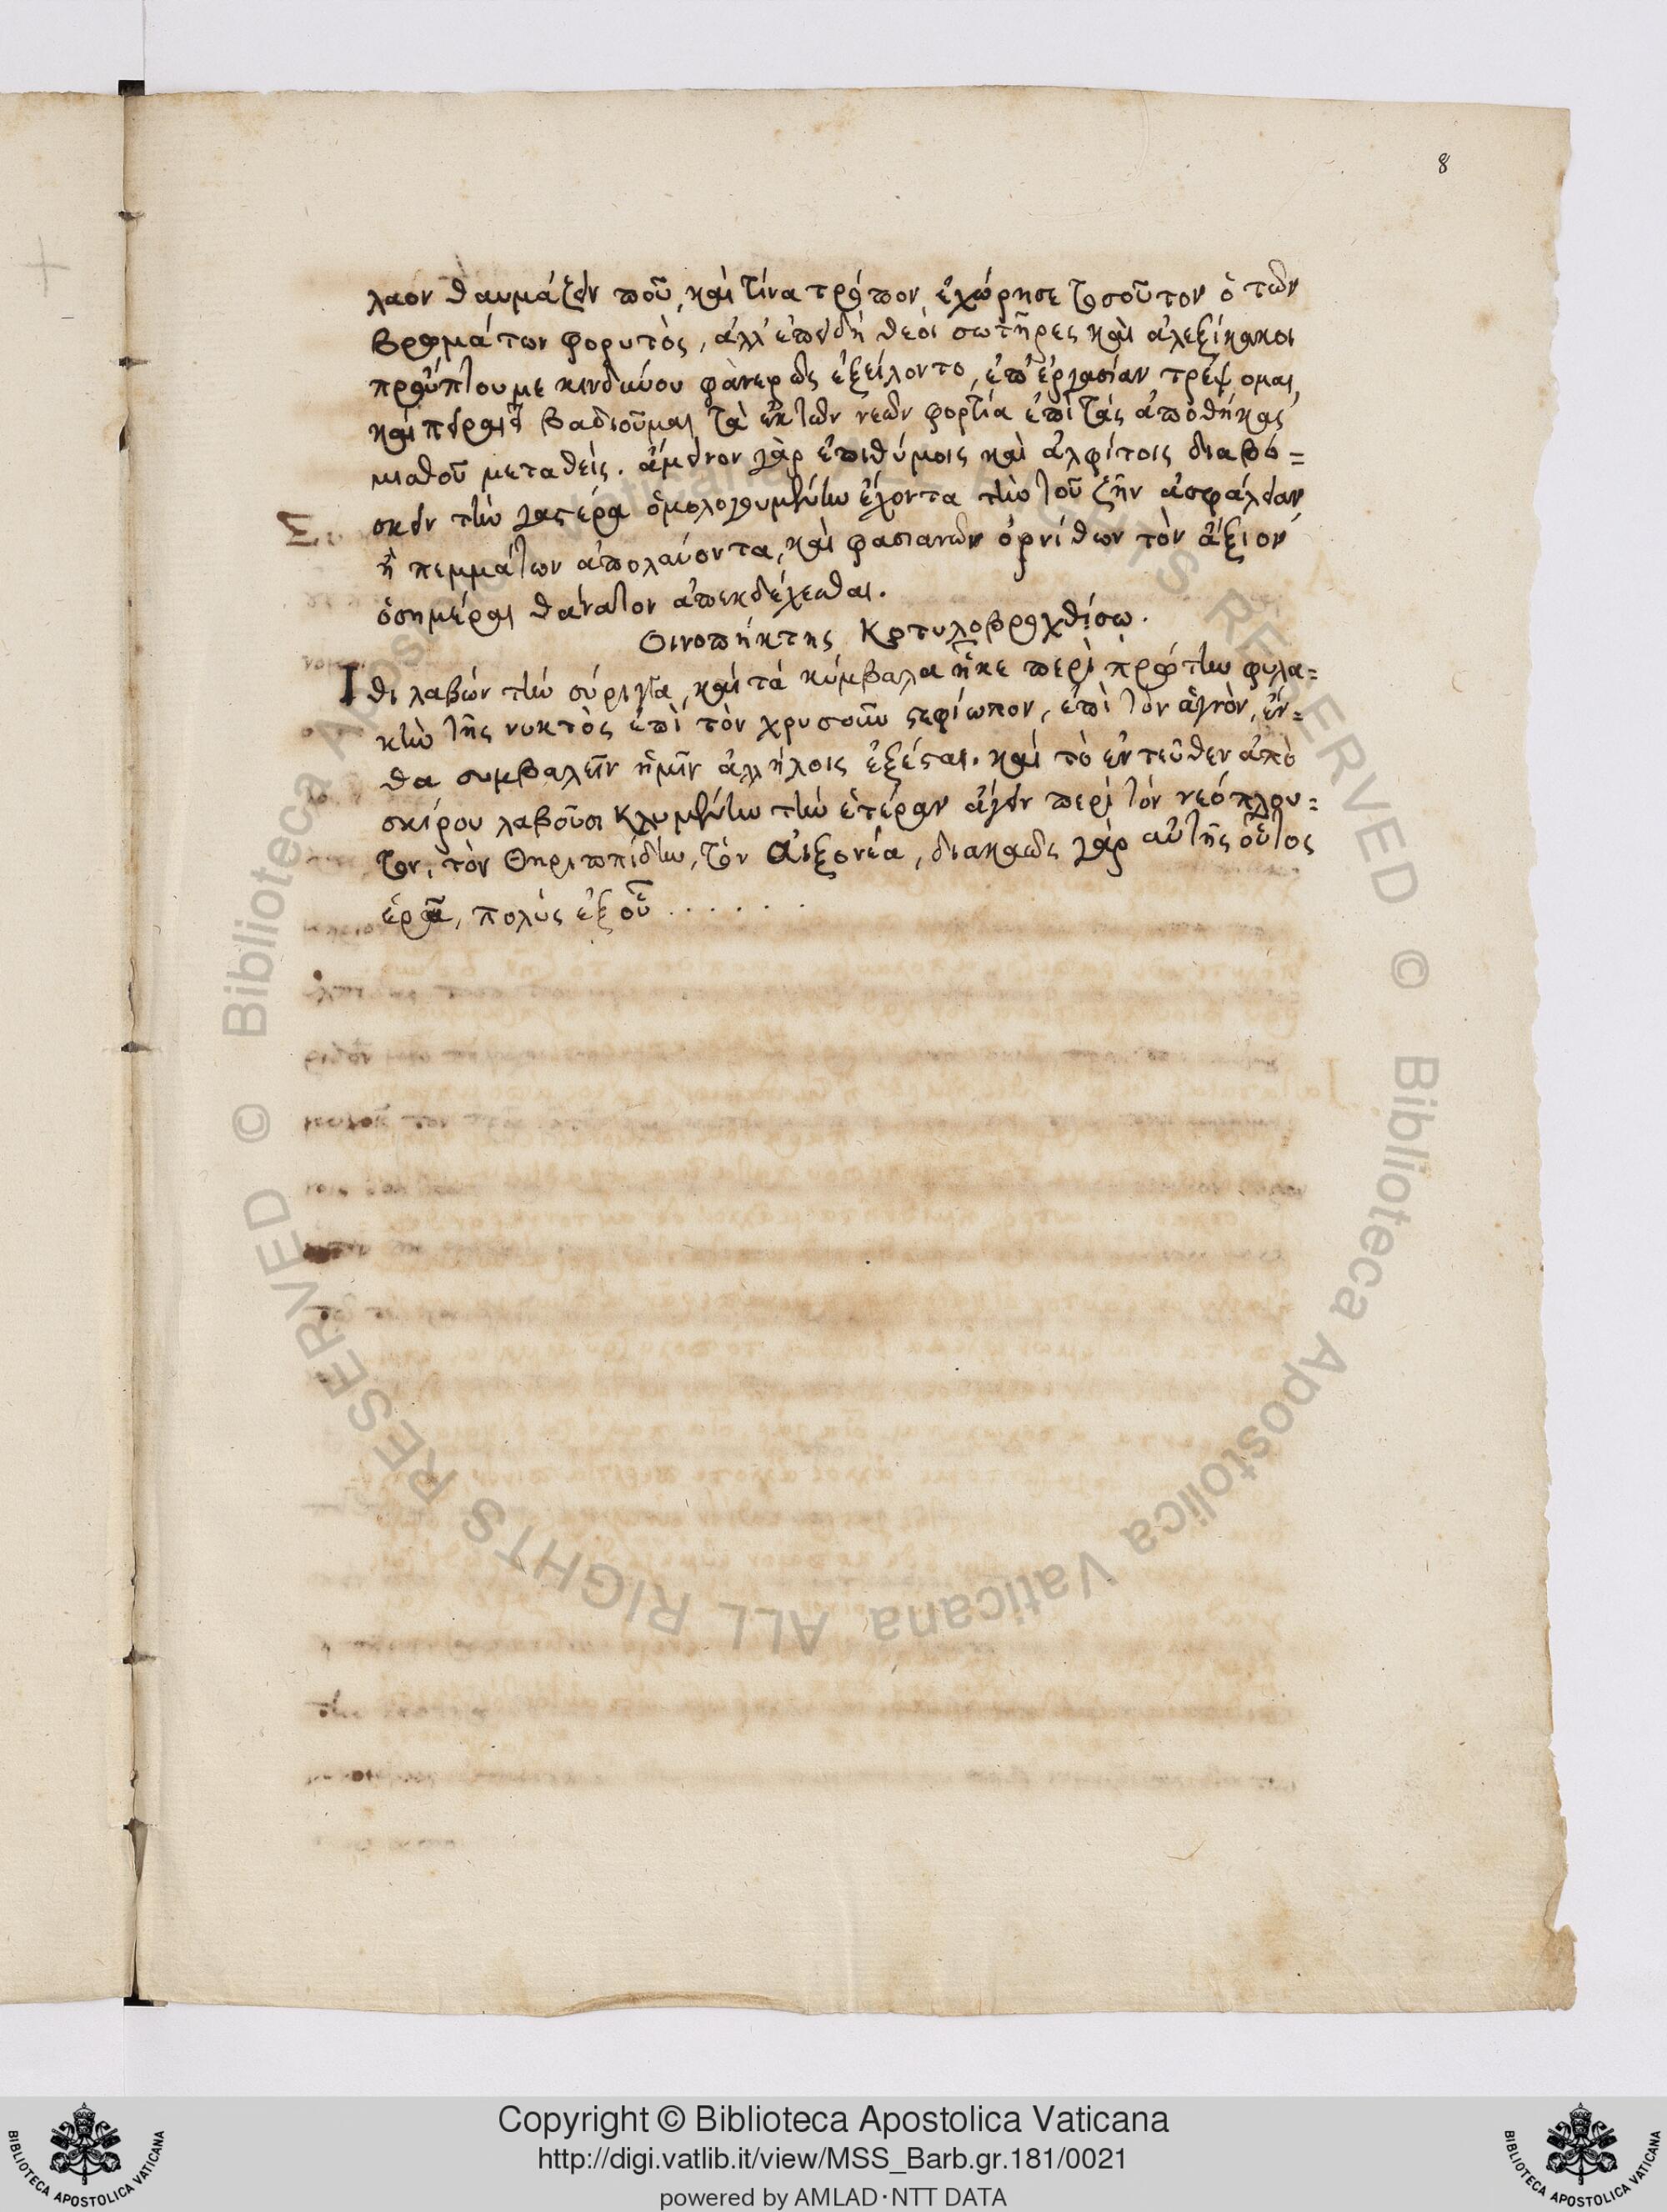 8
λαον θαυμάζειν ποῦ, καὶ τίνα τρόπον ἐχώρησε τοσοῦτον ὁ τῶν
βρωμάτων φορυτὸς, ἀλλ' ἐπειδὴ θεοὶ σωτῆρες καὶ ἀλεξίκακοι
προὔπτου με κινδύνου φανερῶς ἐξείλοντο, ἐπ' ἐργασίαν τρέψομαι,
καὶ πειραιεῖ βαδιοῦμαι τὰ ἐκ τῶν νεῶν φορτία ἐπὶ τὰς ἀποθήκας
μισθοῦ μεταθείς. ἄμεινον γὰρ ἐπιθύμοις καὶ ἀλφίτοις διαβό=
σκειν τὴν γαστέρα ὁμολογουμένην ἔχοντα τὴν τοῦ ζῆν ἀσφάλειαν
ἢ πεμμάτων ἀπολαύοντα, καὶ φασιανῶν ὀρνίθων τὸν ἄξιον
ὁσημέραι θάνατον ἀπεκδέχεσθαι.
Οινοπήκτης Κοτυλοβροχθίσῳ.
Ἴθι λαβὼν τὴν σύριγγα, καὶ τὰ κύμβαλα ἧκε περὶ πρώτην φυλα=
κὴν τῆς νυκτὸς ἐπὶ τὸν χρυσοῦν στεφίωπον, ἐπὶ τὸν ἁγνὸν, ἔν=
θα συμβαλεῖν ἡμῖν ἀλλήλοις ἐξέσται. καὶ τὸ ἐντεῦθεν ἀπὸ
σκίρου λαβοῦσι Κλυμένην τὴν ἑτέραν ἄγειν περὶ τὸν νεόπλου=
τον, τὸν Θηριππίδην, τὸν Αἰξονέα, διακαῶς γὰρ αὐτῆς οὗτος
ἐρᾷ, πολὺς ἐξ οὗ . . . . . .
Copyright © Biblioteca Apostolica Vaticana
http://digi.vatlib.it/view/MSS_Barb.gr.181/0021
powered by AMLAD·NTT DATA
BIBLIOTECA APOSTOLICA VATICANA
BIBLIOTECA APOSTOLICA VATICANA
© Biblioteca Apostolica Vaticana ALL RIGHTS RESERVED
© Biblioteca Apostolica Vaticana ALL RIGHTS RESERVED